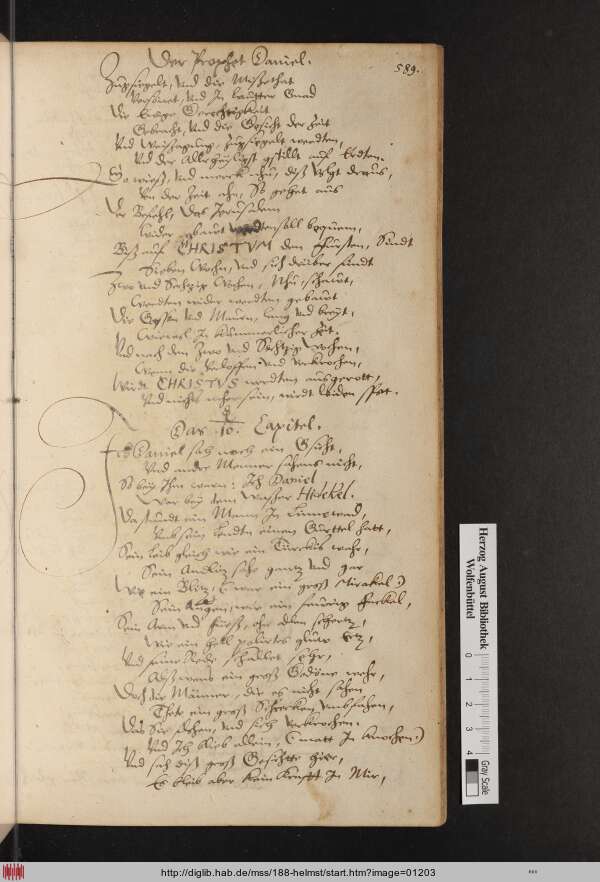 Der Prophet Daniel.
589.
Zugesiegelt, Vnd die Missethat
Versönet, Vnd In lautter Gnad
Die Ewige Gerechtigkeit
Gebracht, Vnd die Gesicht der Zeit
Vnd Weissagung, Zugesiegelt werdten,
Vnd der Allerheyligst gsalbt auf Erdten.
So wiess, vnd merck nhu, diss Volgt draus,
Von der Zeit ahn, So gehet aus
Der Befehl, Das Jerusalem
Wider gbawt werdten soll bequem,
Biss auf CHRISTVM den Fürsten, Sindt
Sieben Wochn, Vnd sich drüber findt
Zwo vnd Sechzig Wochen, Nhu schawt,
Werdten wider werdten gebawt
Die Gassen Vnd Mauren, lang vnd breyt,
Wiewol In kümmerlicher Zeit.
Vnd nach den Zwo vnd Sechtzig Wochen,
Wenn die verloffen vnd verkrochen,
Wirdt CHRISTVS werdten ausgerott,
Vnd nichts mehr sein, wirdt leiden spot.
Das 10. Capitel.
Ich Daniel sah noch ein Gsicht,
Vnd andre Menner sahens nicht,
So bey Ihm warn: Ich Daniel
War bey dem Wasser Hidekel.
Da stundt ein Mann In Leinwand,
Vmb sein Lendtn einen Gurttel hatt,
Sein Leib gleich wie ein Türckis wahr,
Sein Andlitz sahe gantz vnd gar
Wie ein Blitz, (war ein gross Mirakel:)
Sein Augen, wie ein feurig Fackel,
Sein Arm vnd Füess, ohn allen schertz,
Wie ein hell polirtes gluet Ertz,
Vnd seine Rede schallet sehr,
Alss wens ein gross Gedöne wehr,
Doch die Männer, die es nicht sahen
Thet ein gross Schrecken vmbfahen,
Das Sie flohen, vnd sich verkrochen.
Vnd Ich blieb allein, (matt In Knochen:)
Vnd sah diss gross Gesichtte hier,
Es blieb aber kein Krafft In Mir,
Herzog August Bibliothek
Wolfenbüttel
0 1 2 3 4
Gray Scale
http://diglib.hab.de/mss/188-helmst/start.htm?image=01203